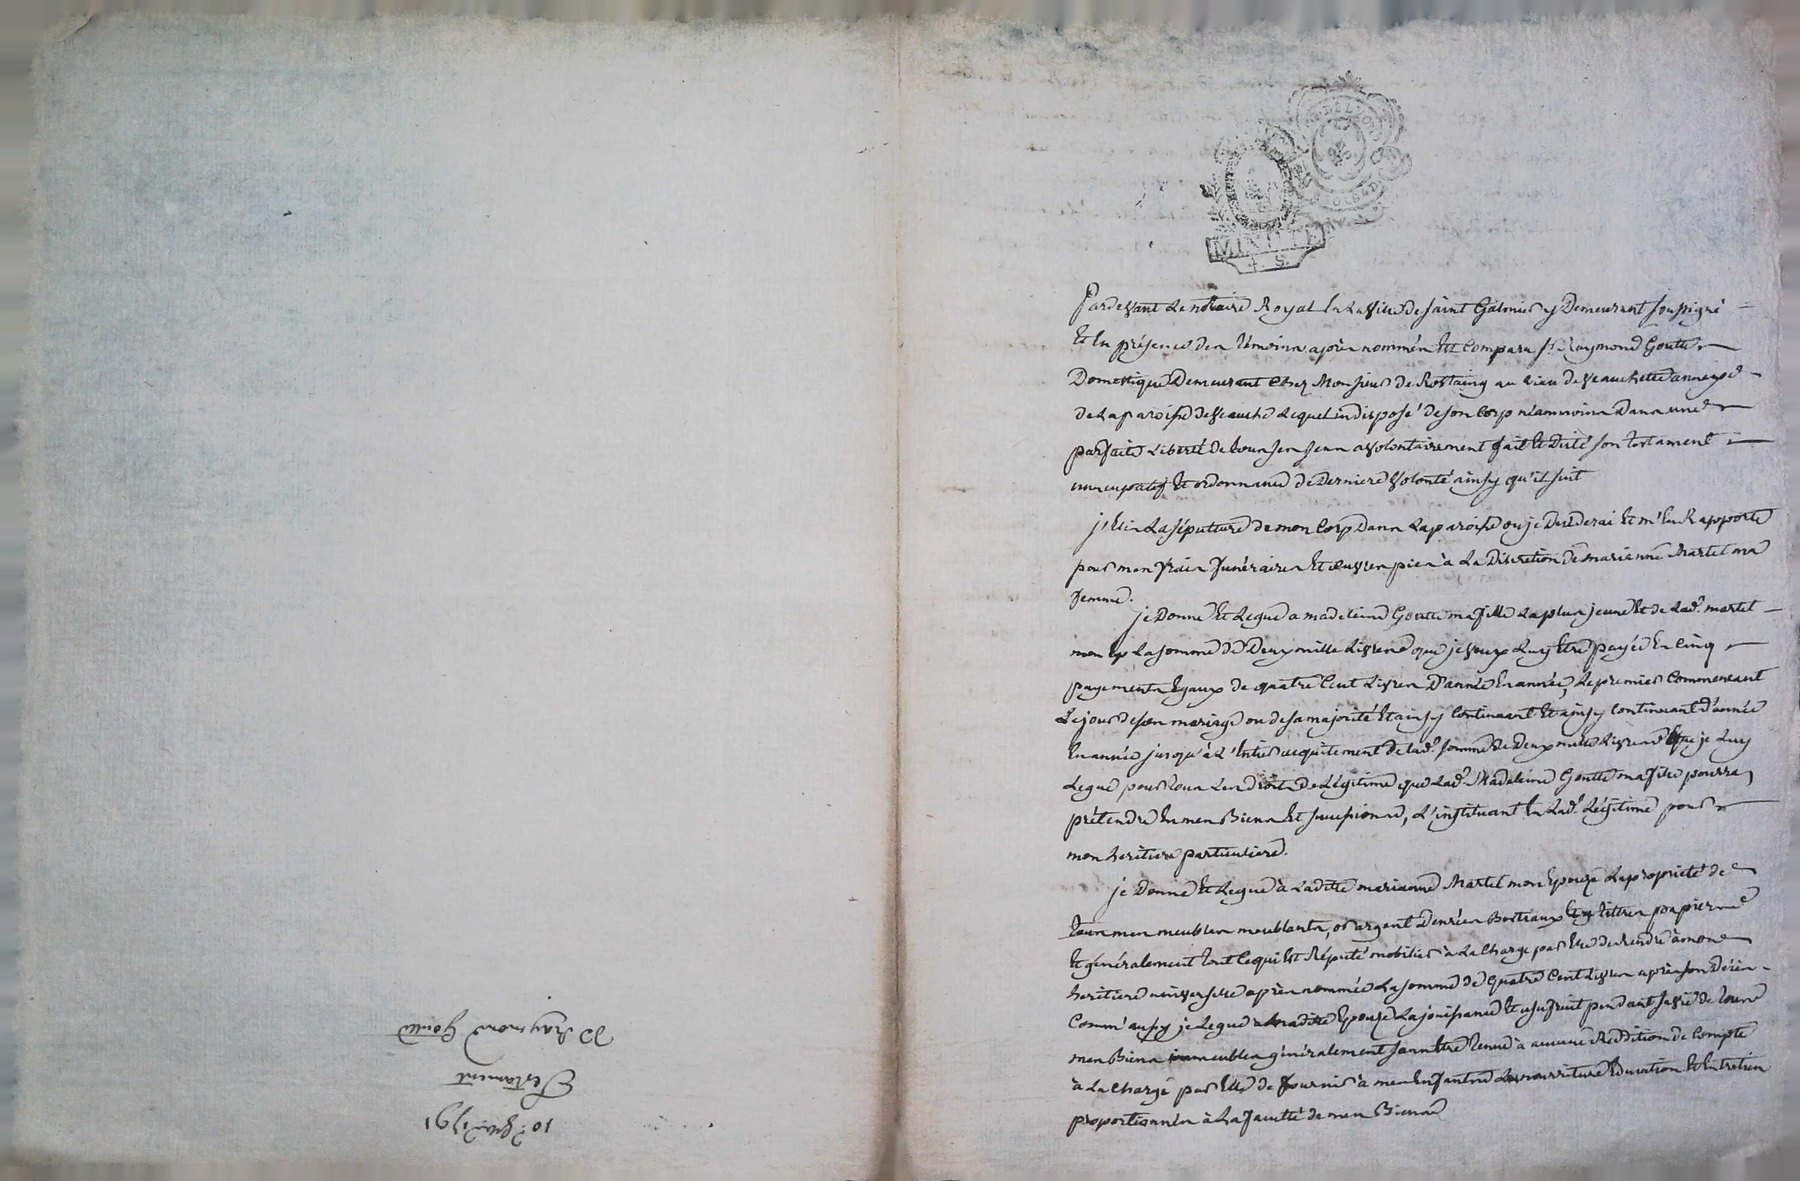 10 7bre 1791
Testament
Raymond Goutte
MINUTE
4. S.
Pardevant Le notaire Royal En La Ville de Saint Galmier y Demeurant soussigné
Et En présence des témoins après nommés Est Comparu Sr. Raymond Goutte
Domestique Demeurant Chez Monsieur de Rostaing au Lieu de Veauchette annexe
de La paroisse de Veauche Lequel indisposé de son Corp néanmoins Dans une
parfaite Liberté de tous ses sens a volontairement fait Et Dicté son testament
nuncupatif Et ordonnance de Derniere Volonté ainsy qu'il suit
j'Elis La sépulture de mon Corp Dans La paroisse ou je Décéderai Et m'En Rapporte
pour mes frais funéraires Et œuvres pies à La Discretion de marianne Martel ma
femme.
je Donne Et Legue a madeleine Goutte ma fille La plus jeune Et de Lad. martel
mon Ep La somme de Deux mille Livres que je veux Luy Etre payée En Cinq
payements Egaux de quatre Cent Livres D'année En année, Le premier Commencant
Le jour de son mariage ou de sa majorité Et ainsy Continuant Et ainsy Continuant d'année
En année jusqu'à L'Entier acquitement de Lad. somme de Deux mille Livres que je Luy
Legue pour tous Les droits De Légitime que Lad. Madeleine Goutte ma fille pourra
prétendre En mes Biens Et successions, L'instituant En Lad. Légitime pour
mon heritiere particuliere.
je Donne Et Legue à Laditte marianne Martel mon Epouze La propriété de
tous mes meubles meublants, or argent Denrées Bestiaux Lettres papiers
Et généralement tout Ce qui Est Réputé mobilier à La Charge par Elle de Rendre à mon
heritiere universelle après nommée La somme de quatre Cent Livres après son Décès
Comm' aussy je Legue a Laditte Epouze La jouissance Et usufruit pendant sa vie de tous
mes Biens immeubles généralement sans Etre tenue à aucune Reddition de Compte
à La Charge par Elle de fournir à mes Enfants La nourriture Education Et Entretien
proportionnés à La faculté de mes Biens